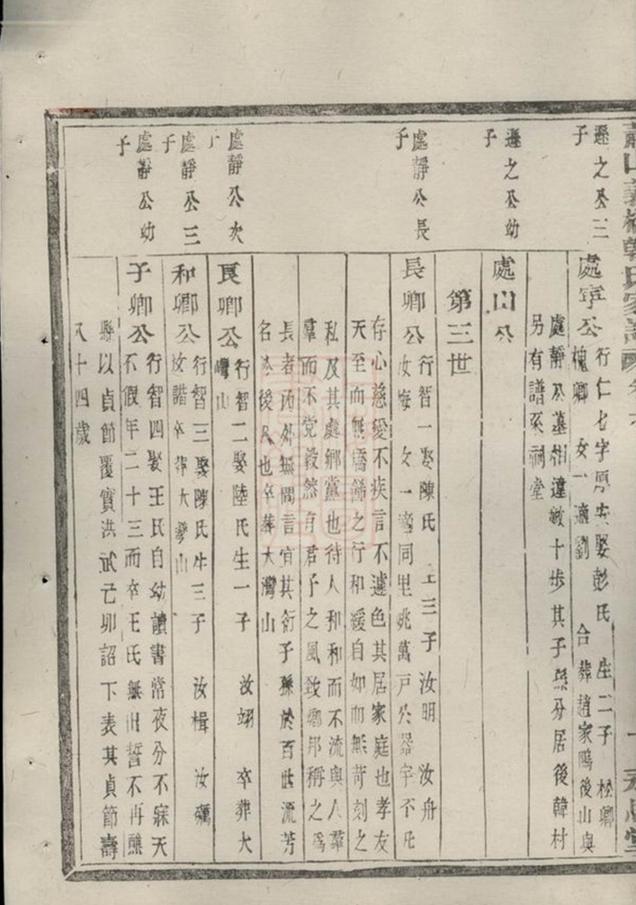 遜之公三子
處寧公
行仁七字 娶彭氏 生二子 松卿
槐卿 女一適劉 合葬趙家 後山與
處靜公墓相違數十步其子孫分居後韓村
另有譜系祠堂
遜之公幼子
處山公
第三世
處靜公長子
長卿公
行智一娶陳氏 生三子汝明 汝舟
汝海 女一適同里姚萬戶公器宇不凡
存心慈愛不疾言不遽色其居家庭也孝友
天至而無矯飾之行和緩自如而無苛刻之
私及其處鄉黨也待人和和而不流與人羣
羣而不党毅然有君子之風致鄉邦稱之為
長者內外無間言宜其衍子孫於百世流芳
名於後人也卒葬大灣山
處靜公次
良卿公
行智二娶陸氏生一子 汝翊 卒葬大
灣山
處靜公三子
和卿公
行智三娶陳氏生三子 汝楫 汝礪
汝諧卒葬大灣山
處靜公幼子
子卿公
行智四娶王氏自幼讀書常夜分不寐天
不假年二十三而卒王氏無出誓不再醮
以貞節覆實洪武己卯詔下表其貞節壽
八十四歲